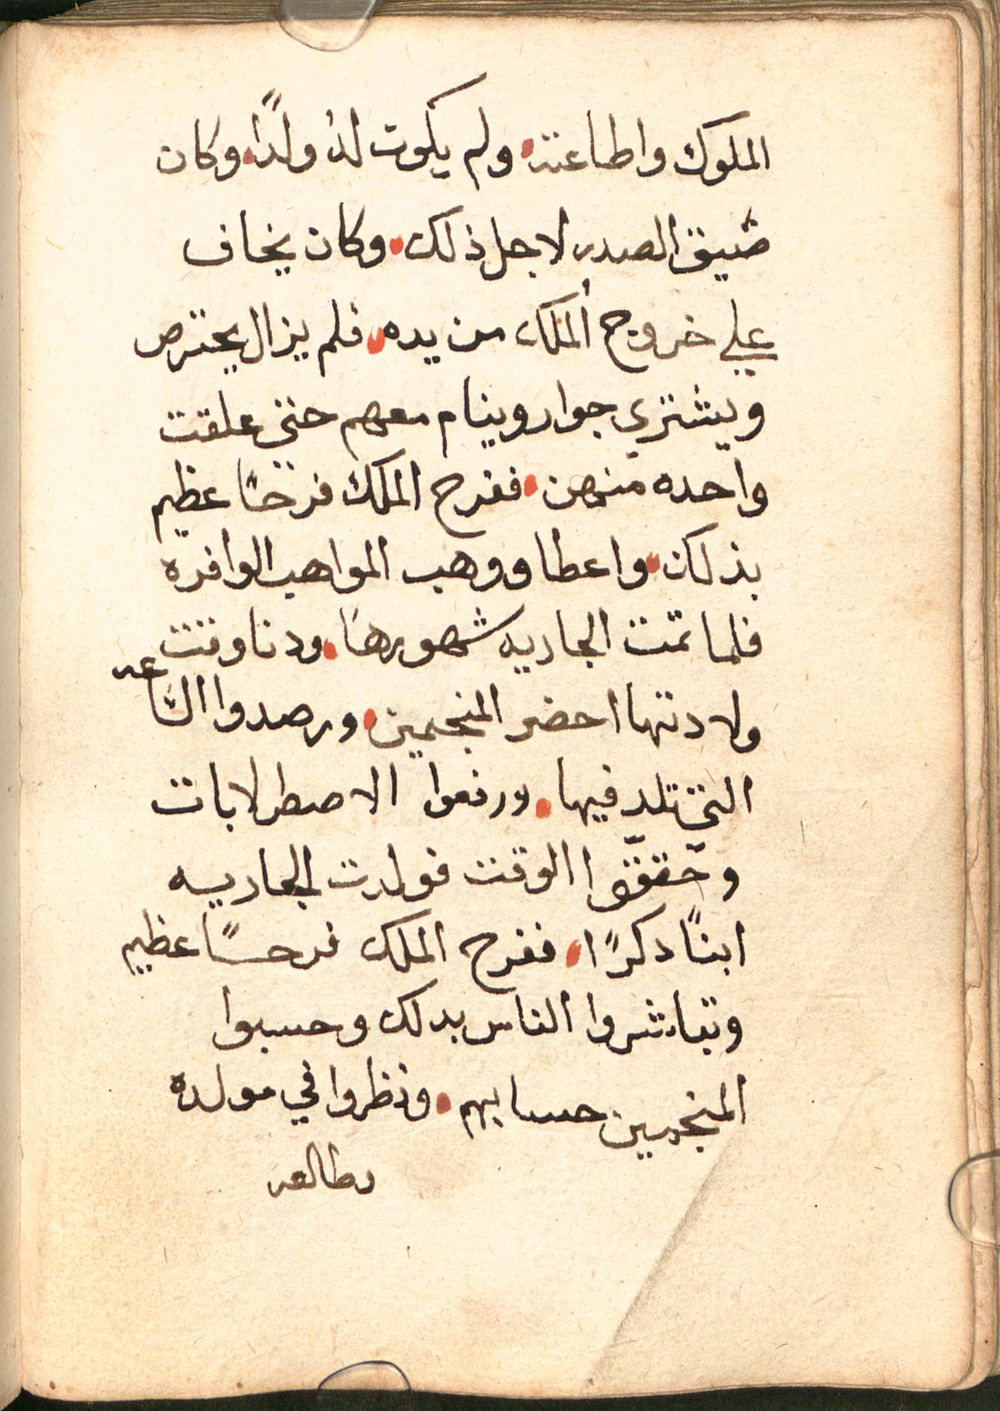 الملوك واطاعته ولم يكون لهُ ولدًا وكان
ضيق الصدر لاجل ذلك وكان يخاف
علي خروج المُلك من يده فلم يزال يحترص
ويشتري جوار وينام معهم حتى علقت
واحده منهن ففرح الملك فرحًا عظيم
بذلك واعطا ووهب المواهب الوافره
فلما تمت الجاريه شهورها ودنا وقت
ولادتها احضر المنجمين ورصدوا الساعه
التي تلد فيها ورفعوا الاصطرلابات
وحققّوا الوقت فولدت الجاريه
ابنًا دكرًا ففرح الملك فرحًا عظيم
وتباشروا الناس بدلك وحسبوا
المنجمين حسابهم ونظروا في مولده
وطالعه